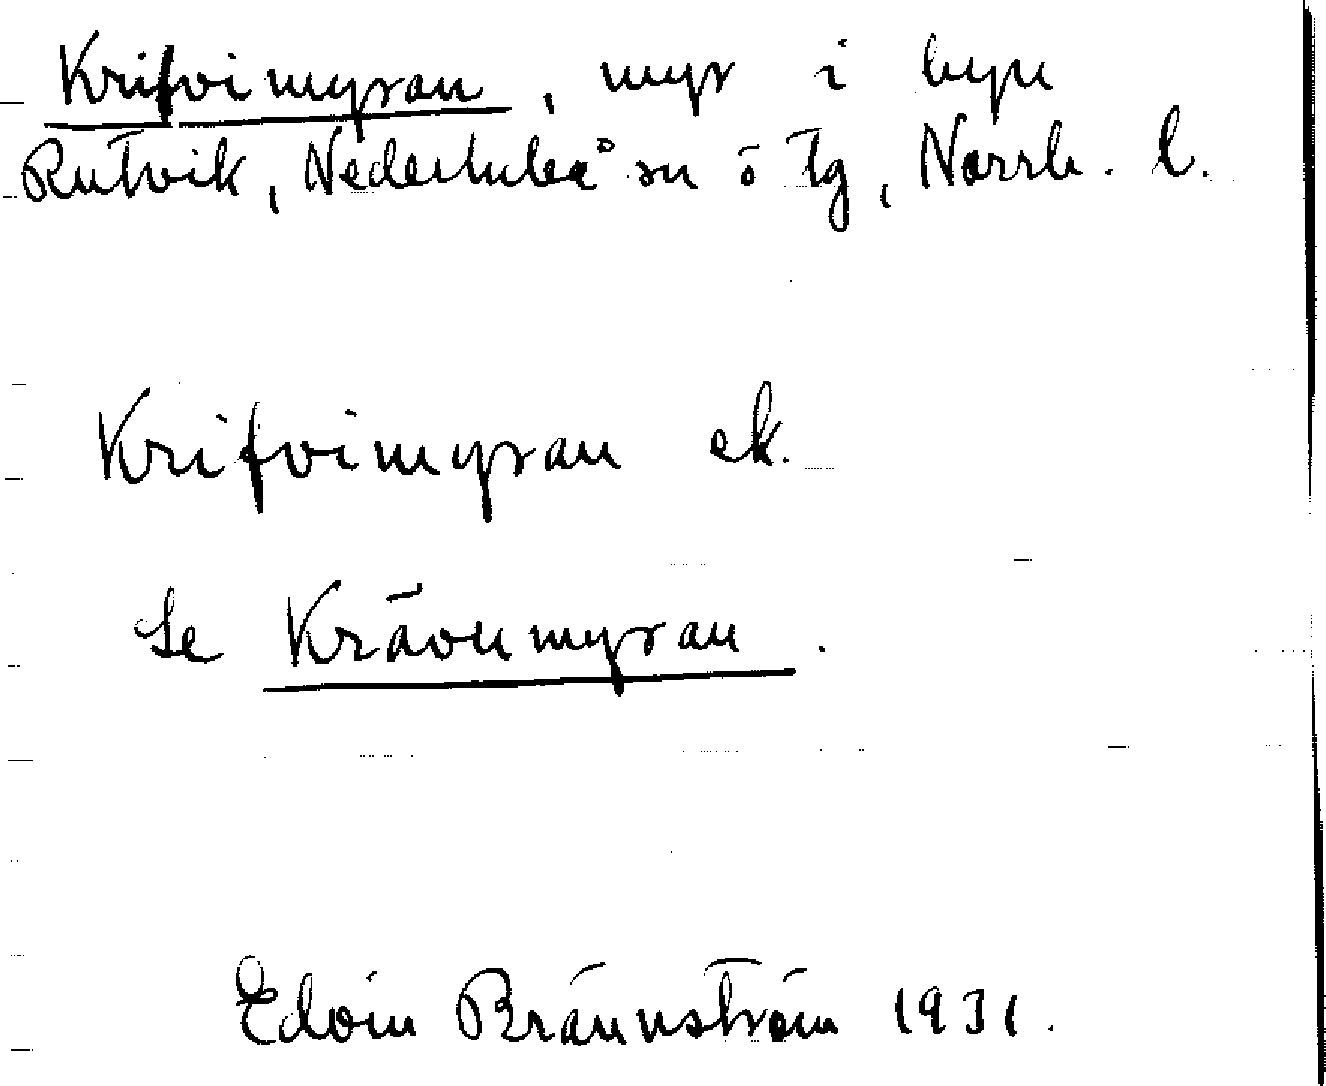 Krifvimyran, myr i byn
Rutvik, Nederluleå sn ö tg, Norrb. l.
Krifvimyran ek.
Se Krävnmyran.
Edvin Brännström 1931.